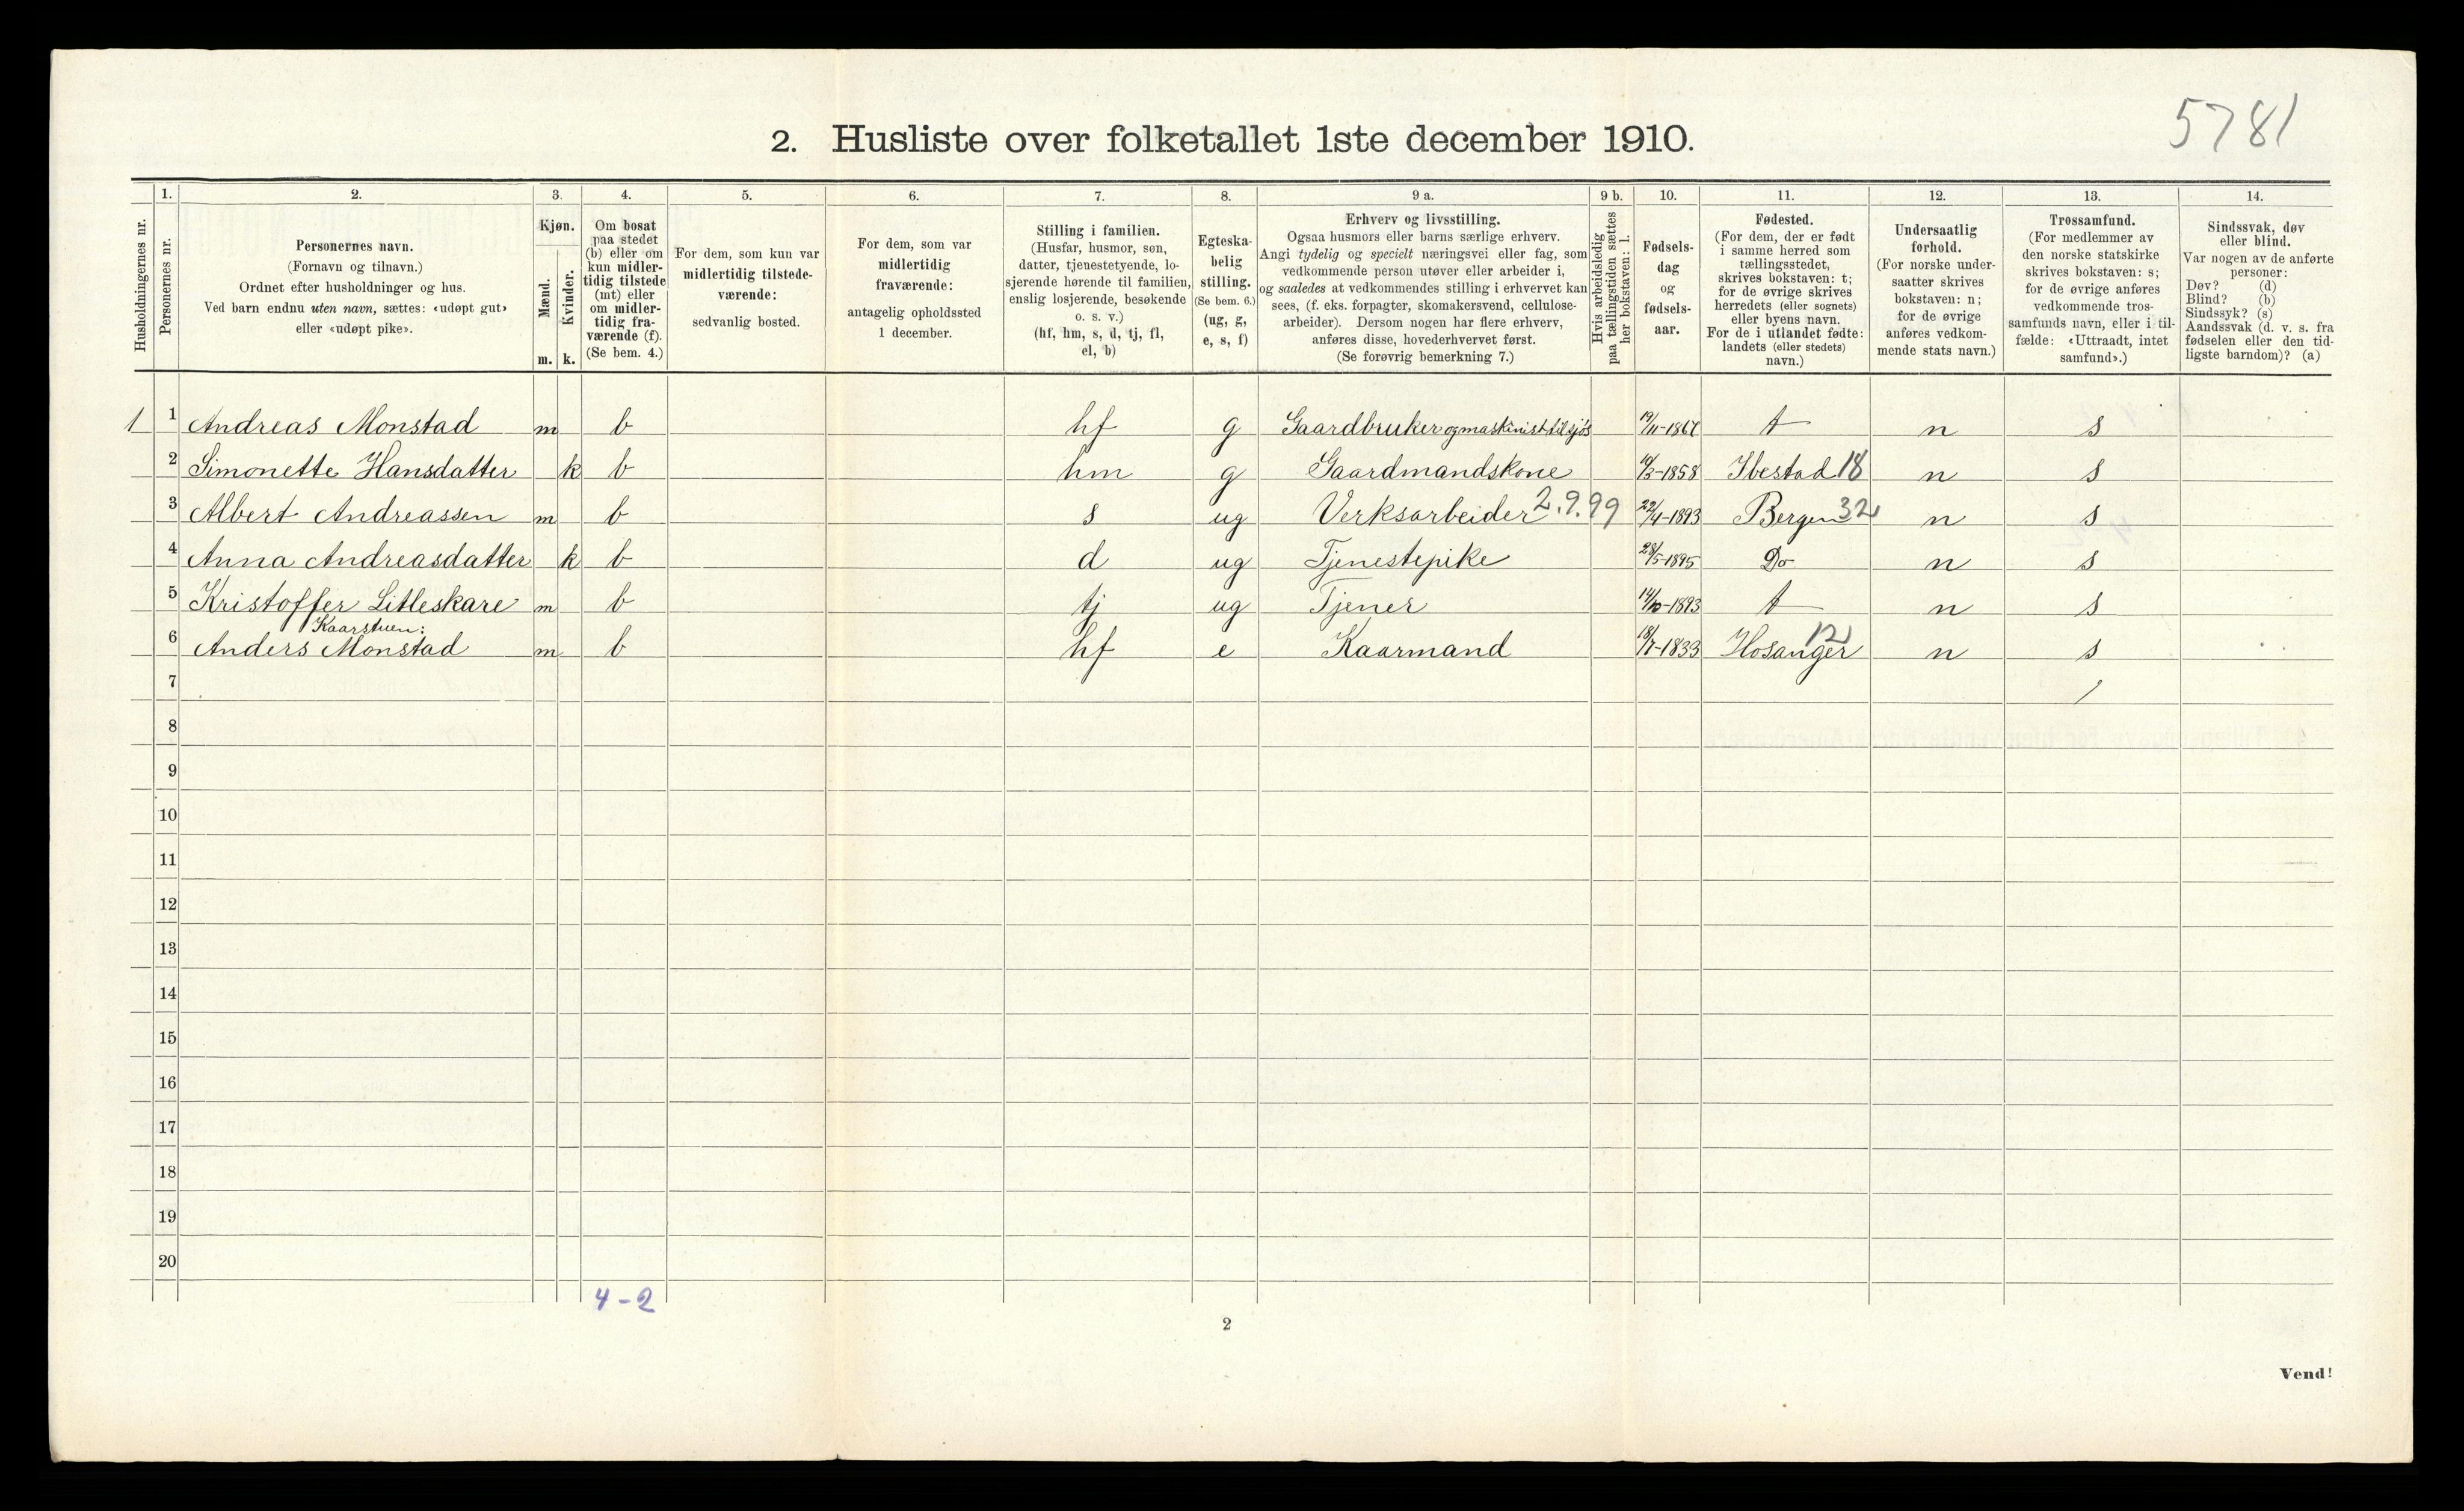 5781
2. Husliste over folketallet 1ste december 1910.
Husholdningernes nr.
1.
Personernes nr.
2.
Personernes navn.
(Fornavn og tilnavn.)
Ordnet efter husholdninger og hus.
Ved barn endnu uten navn, sættes: «udøpt gut»
eller «udøpt pike».
3.
Kjøn.
Mænd.
Kvinder.
m. k.
4.
Om bosat
paa stedet
(b) eller om
kun midler-
tidig tilstede
(mt) eller
om midler-
tidig fra-
værende (f).
(Se bem. 4.)
5.
For dem, som kun var
midlertidig tilstede-
værende:
sedvanlig bosted.
6.
For dem, som var
midlertidig
fraværende:
antagelig opholdssted
1 december.
7.
Stilling i familien.
(Husfar, husmor, søn,
datter, tjenestetyende, lo-
sjerende hørende til familien,
enslig losjerende, besøkende
o. s. v.)
(hf, hm, s, d, tj, fl,
el, b)
8.
Egteska-
belig
stilling.
(Se bem. 6.)
(ug, g,
e, s, f)
9 a.
Erhverv og livsstilling.
Ogsaa husmors eller barns særlige erhverv.
Angi tydelig og specielt næringsvei eller fag, som
vedkommende person utøver eller arbeider i,
og saaledes at vedkommendes stilling i erhvervet kan
sees, (f. eks. forpagter, skomakersvend, cellulose-
arbeider). Dersom nogen har flere erhverv,
anføres disse, hovederhvervet først.
(Se forøvrig bemerkning 7.)
9 b.
Hvis arbeidsledig
paa tællingstiden sættes
her bokstaven: l.
10.
Fødsels-
dag
og
fødsels-
aar.
11.
Fødested.
(For dem, der er født
i samme herred som
tællingsstedet,
skrives bokstaven: t;
for de øvrige skrives
herredets (eller sognets)
eller byens navn.
For de i utlandet fødte:
landets (eller stedets)
navn.)
12.
Undersaatlig
forhold.
(For norske under-
saatter skrives
bokstaven: n;
for de øvrige
anføres vedkom-
mende stats navn.)
13.
Trossamfund.
(For medlemmer av
den norske statskirke
skrives bokstaven: s;
for de øvrige anføres
vedkommende tros-
samfunds navn, eller i til-
fælde: «Uttraadt, intet
samfund».)
14.
Sindssvak, døv
eller blind.
Var nogen av de anførte
personer:
Døv? (d)
Blind? (b)
Sindssyk? (s)
Aandssvak (d. v. s. fra
fødselen eller den tid-
ligste barndom)? (a)
1 1 Andreas Monstad m b hf g Gaardbruker og maskinist tilsjøs t n s
2 Simonette Hansdatter k b hm g Gaardmandskone 10/3-1858 Ibestad 18 n s
3 Albert Andreassen m b s ug Verksarbeider 2.9.99 22/4-1893 Bergen 32 n s
4 Anna Andreasdatter k b d ug Tjenestepike 28/5-1895 Do n s
5 Kristoffer Litleskare m b tj ug Tjener 14/10-1893 t n s
Kaarstuen:
6 Anders Monstad m b hf e Kaarmand 18/7-1833 Hosanger 12 n s
7
8
9
10
11
12
13
14
15
16
17
18
19
20
4-2
2
Vend!